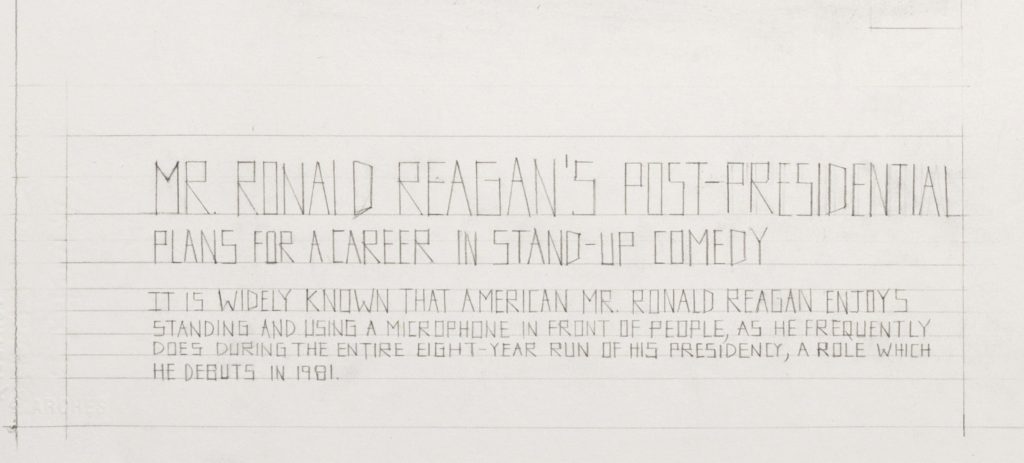 MR. RONALD REAGAN'S POST-PRESIDENTIAL
PLANS FOR A CAREER IN STAND-UP COMEDY
IT IS WIDELY KNOWN THAT AMERICAN MR. RONALD REAGAN ENJOYS
STANDING AND USING A MICROPHONE IN FRONT OF PEOPLE, AS HE FREQUENTLY
DOES DURING THE ENTIRE EIGHT-YEAR RUN OF HIS PRESIDENCY, A ROLE WHICH
HE DEBUTS IN 1981.
ARCHES